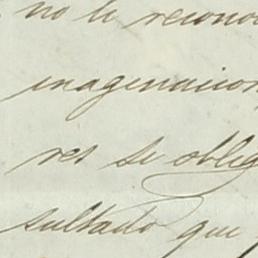 no le reconoc
imaginacion
res se oblig
sultado que